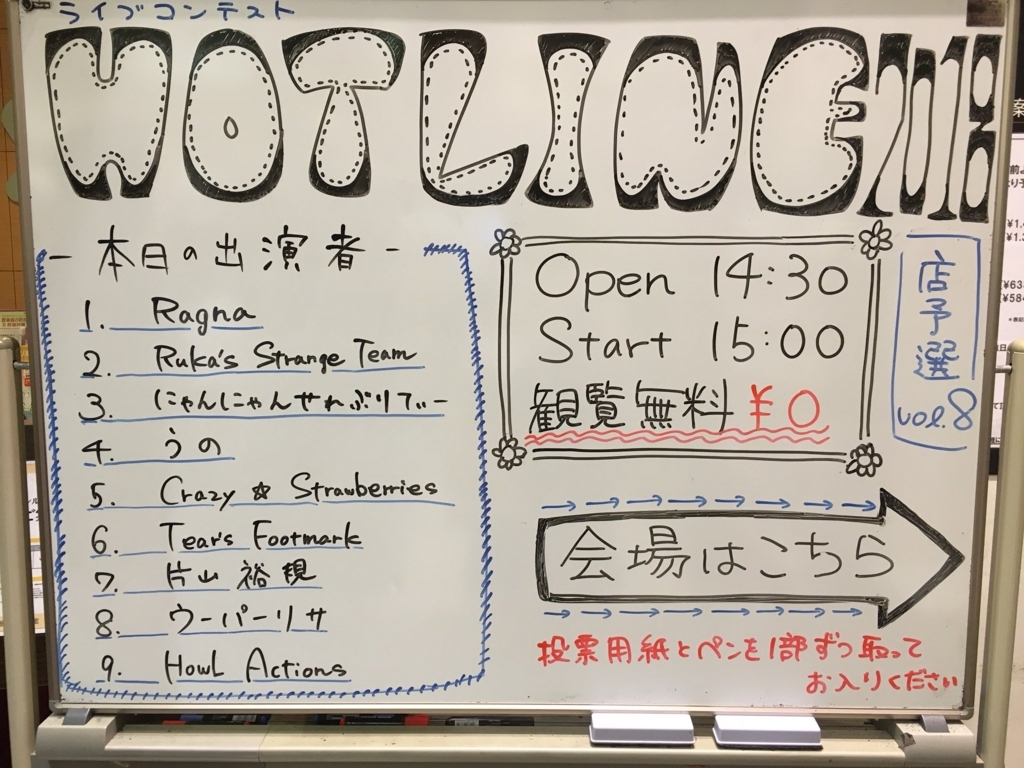 ライブコンテスト
HOTLINE 2018
- 本日の出演者 -
1. Ragna
2. Ruka's Strange Team
3. にゃんにゃんせれぶりてぃー
4. うの
5. Crazy ☆ Strawberries
6. Tear's Footmark
7. 片山 裕規
8. ウーパーリサ
9. HowL Actions
Open 14:30
Start 15:00
観覧無料 ¥0
店予選
vol.8
会場はこちら
投票用紙とペンを1部ずつ取って
お入りください